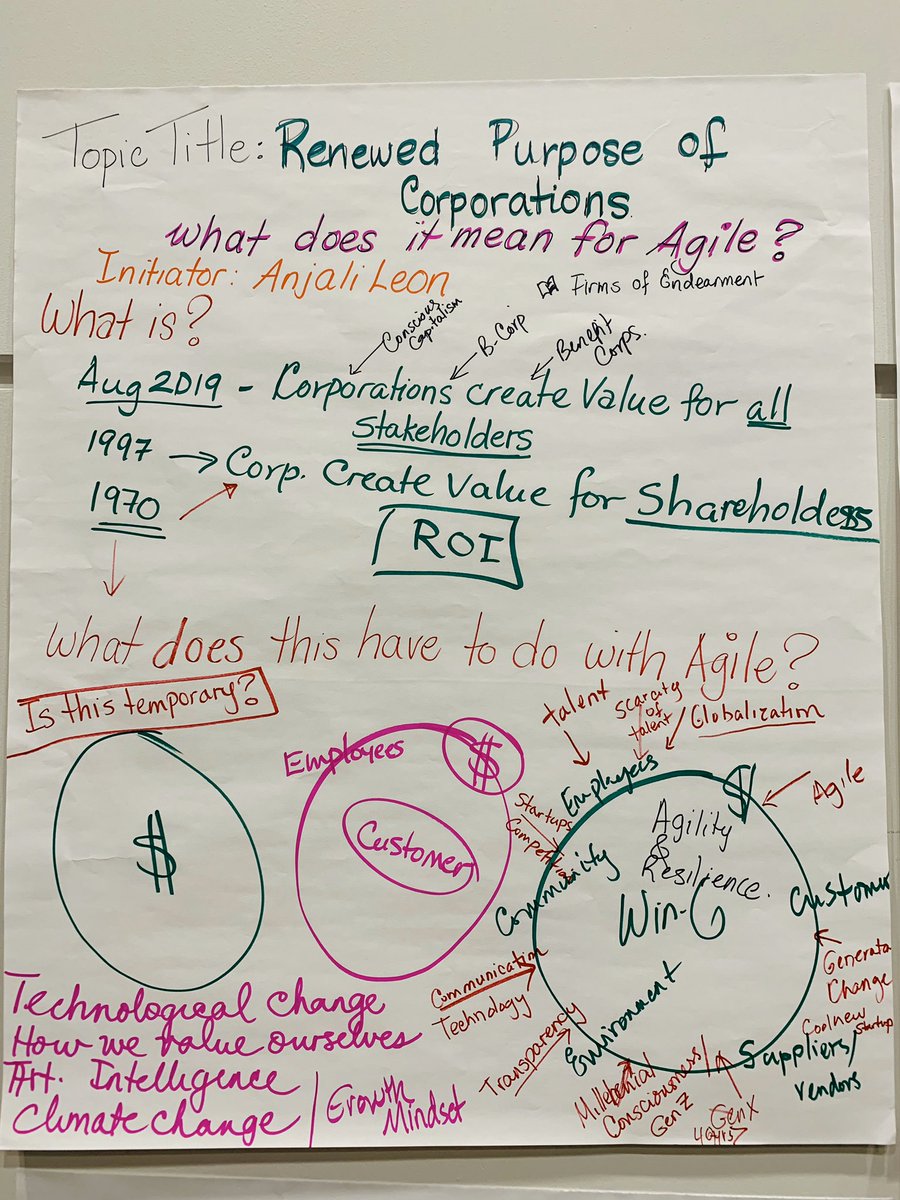 Topic Title: Renewed Purpose of
Corporations
What does it mean for Agile?
Initiator: Anjali Leon
Firms of Endearment
What is?
Conscious
Capitalism
B-Corp
Benefit
Corps.
Aug 2019 - Corporations create Value for all
Stakeholders
1997 → Corp. Create Value for Shareholders
1970
ROI
What does this have to do with Agile?
Is this temporary?
$
Employees
$
Customer
talent
Scarcity
of
talent
Globalization
Employees
$
Agile
Startups
Compete
Agility
&
Resilience.
Community
Win-6
Customer
Communication
Technology
Generata
Change
Cool new
Startup
Transparency
Environment
Suppliers/
vendors
Millennial
Consciousness/
Gen Z
Gen X
40 yrs
Technological change
How we value ourselves
Art. Intelligence
Climate change / Growth
Mindset